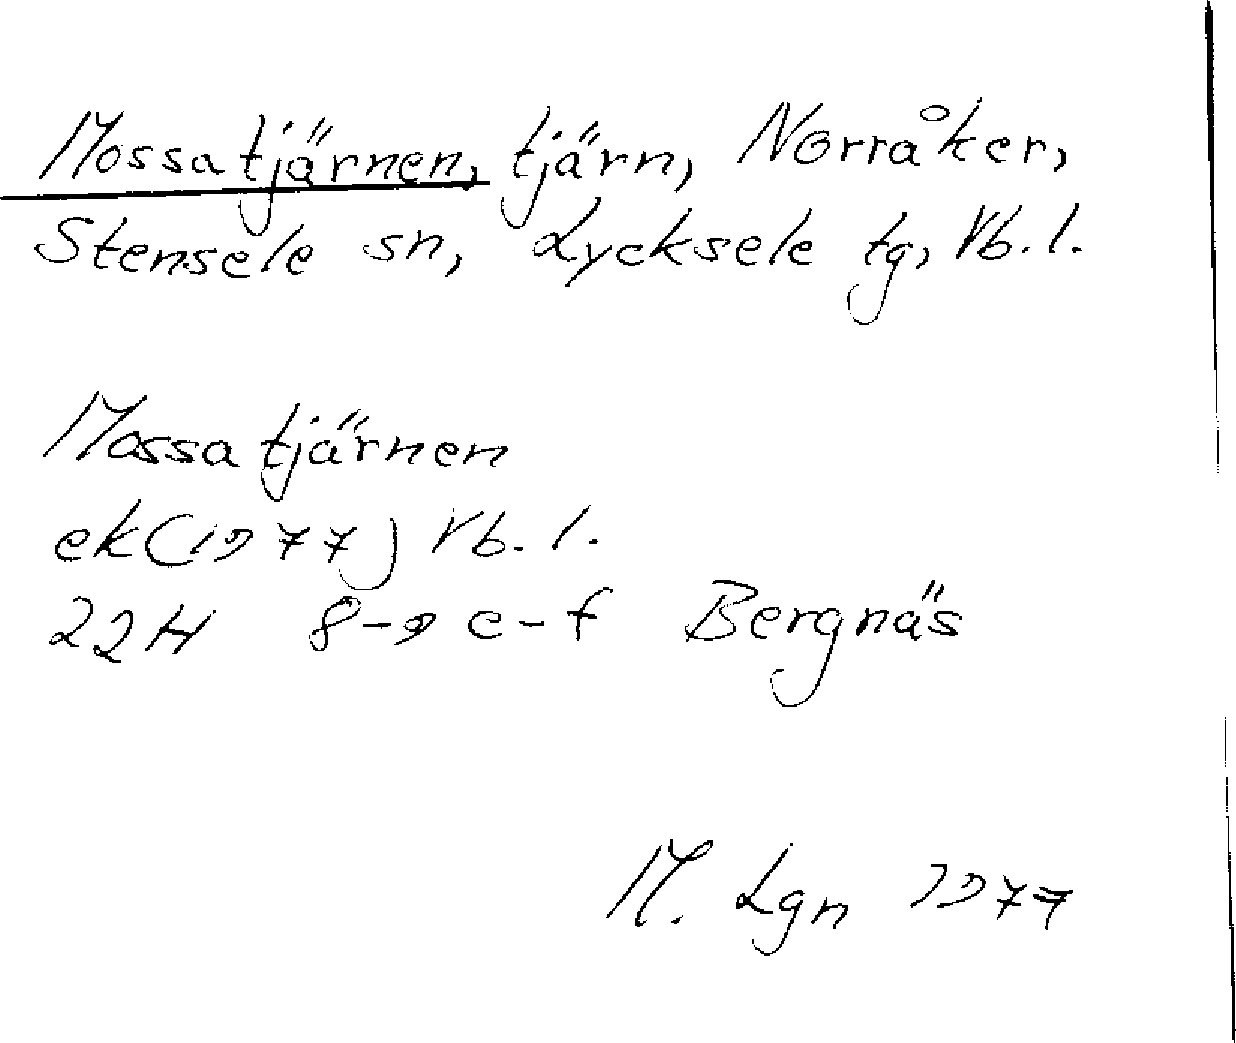 Mossatjärnen, tjärn, Norråker,
Stensele sn, Lycksele tg, Vb. l.
Mossatjärnen
ek (1977) Vb. l.
22H 8-9 e-f Bergnäs
M. Lgn 1977